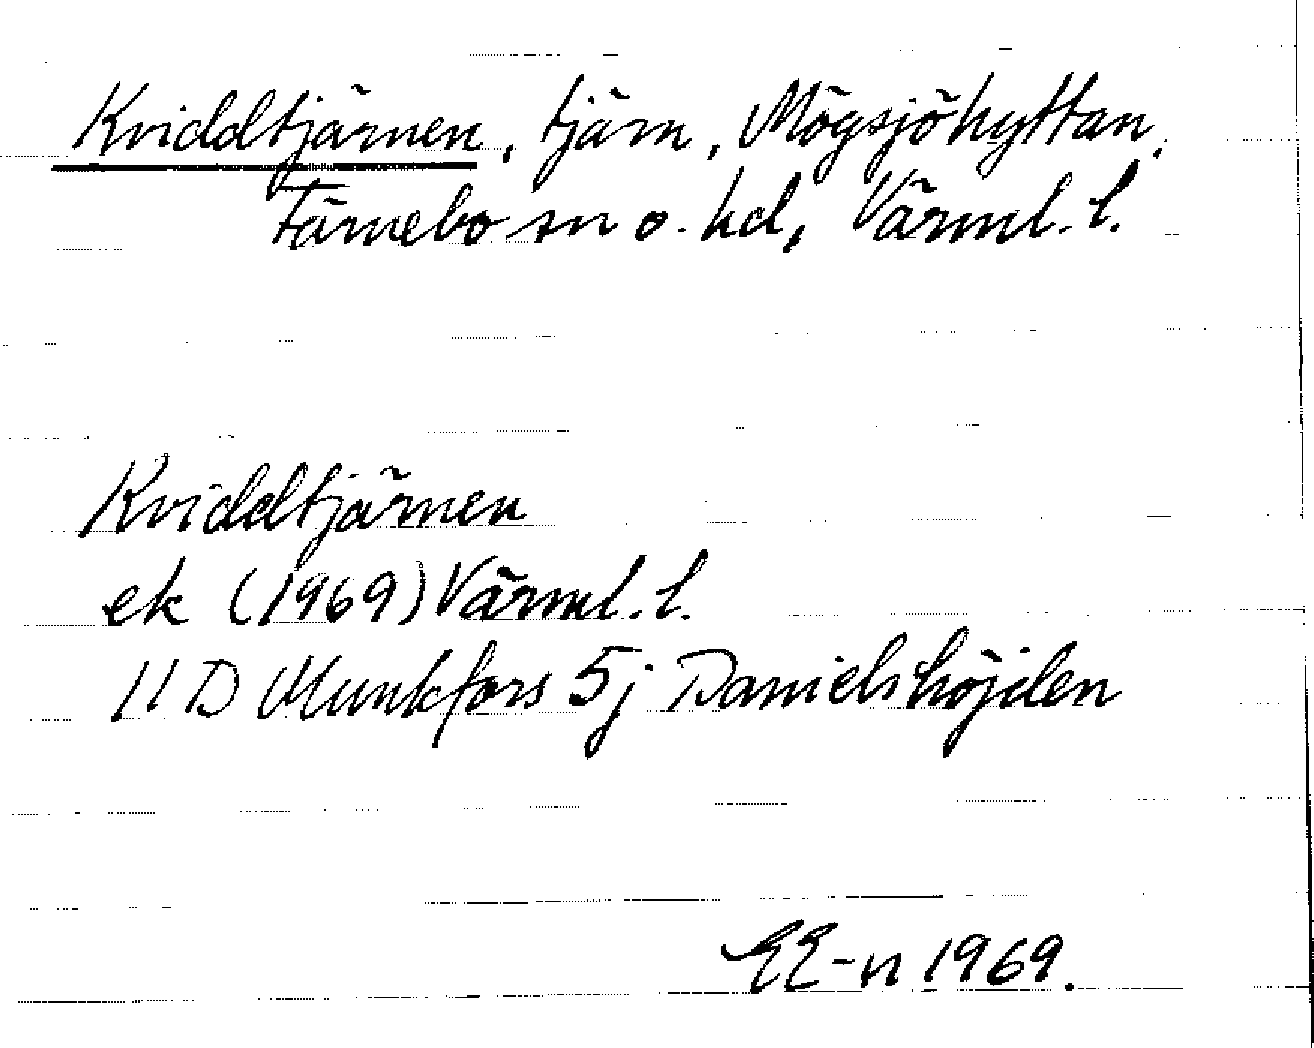 Kviddtjärnen, tjärn, Mögsjöhyttan,
Färnebo sn o. hd, Värml. l.
Kviddtjärnen
ek (1969) Värml. l.
11 D Munkfors 5j Danielshöjden
EE-n 1969.